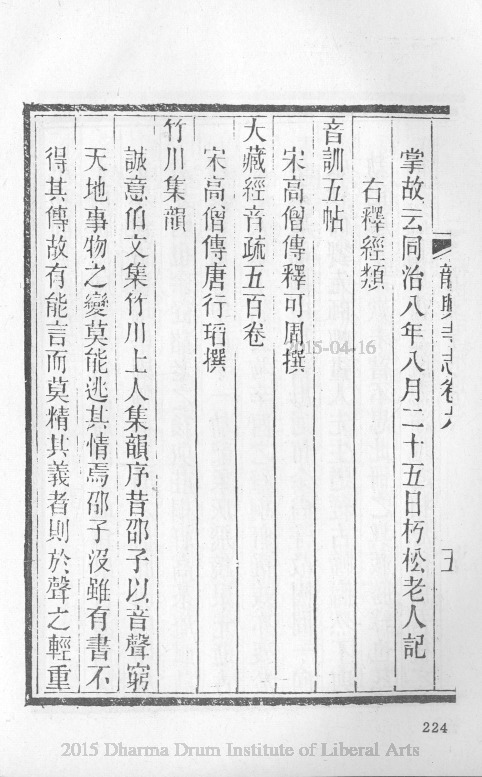 掌故云同治八年八月二十五日朽松老人記
右釋經類
音訓五帖
宋高僧傳釋可周撰
大藏經音疏五百卷
宋高僧傳唐行瑫撰
竹川集韻
誠意伯文集竹川上人集韻序昔邵子以音聲窮
天地事物之變莫能逃其情焉邵子沒雖有書不
得其傳故有能言而莫精其義者則於聲之輕重
龍興寺志卷九
五
2015-04-16
224
2015 Dharma Drum Institute of Liberal Arts